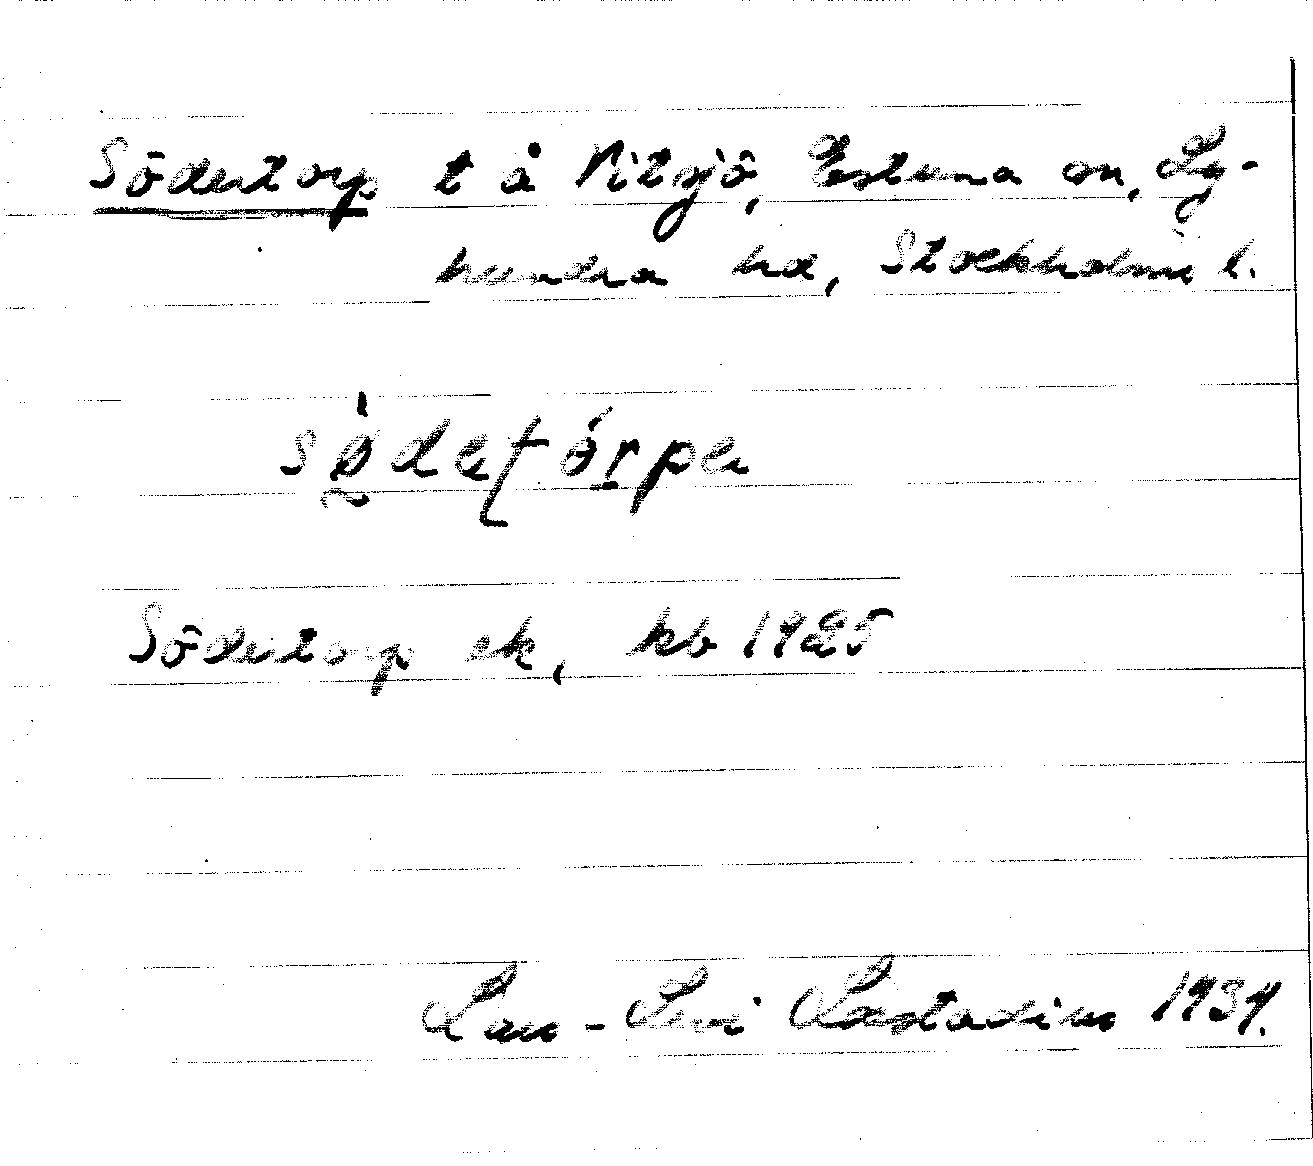 Södertorp t å Nitsjö, Estuna sn, Ly-
hundra hd, Stockholms l.
södetórpe
Södertorp ek, kb 1925
Lars-Levi Læstadius 1934.